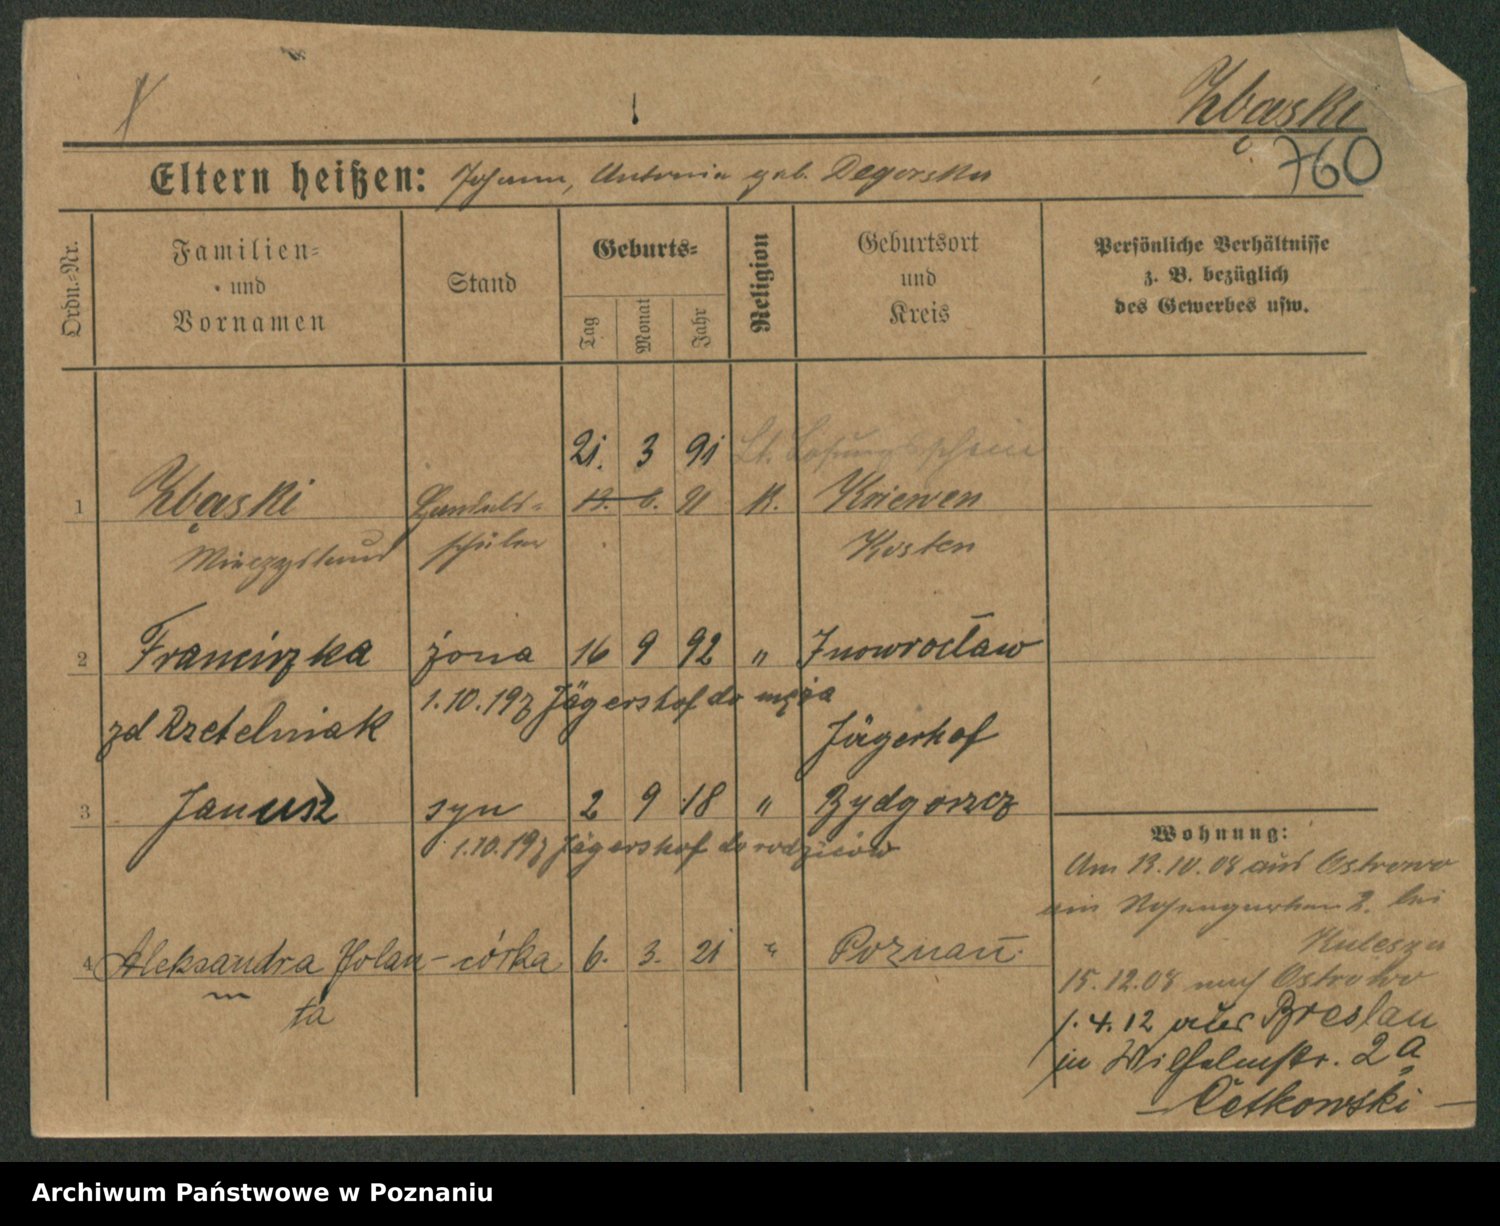 Zbąski
760
Eltern heißen: Johann, Antonie geb. Degorska
Ordn.-Nr.
Familien-
und
Vornamen
Stand
Geburts-
Tag
Monat
Jahr
Religion
Geburtsort
und
Kreis
Persönliche Verhältnisse
z. B. bezüglich
des Gewerbes usw.
21. 3 91 Lt. Losungsschein
1 Zbąski Handels- 19. 6. 91 K. Kriewen
Mieczyslaus schüler Kosten
2 Franciszka żona 16 9 92 " Inowrocław
1.10.19 z Jägershof do męża
zd Rzetelniak Jägerhof
3 Janusz syn 2 9 18 " Bydgoszcz
1.10.19 z Jägershof do rodziców
4 Aleksandra Jolan- córka 6. 3. 21 " Poznań.
ta
Wohnung:
Am 13.10.08 aus Ostrowo
2. bei
15.12.08 nach Ostrowo
1.4.12 aus Breslau
in Wilhelmstr. 2a
Cetkowski
Archiwum Państwowe w Poznaniu